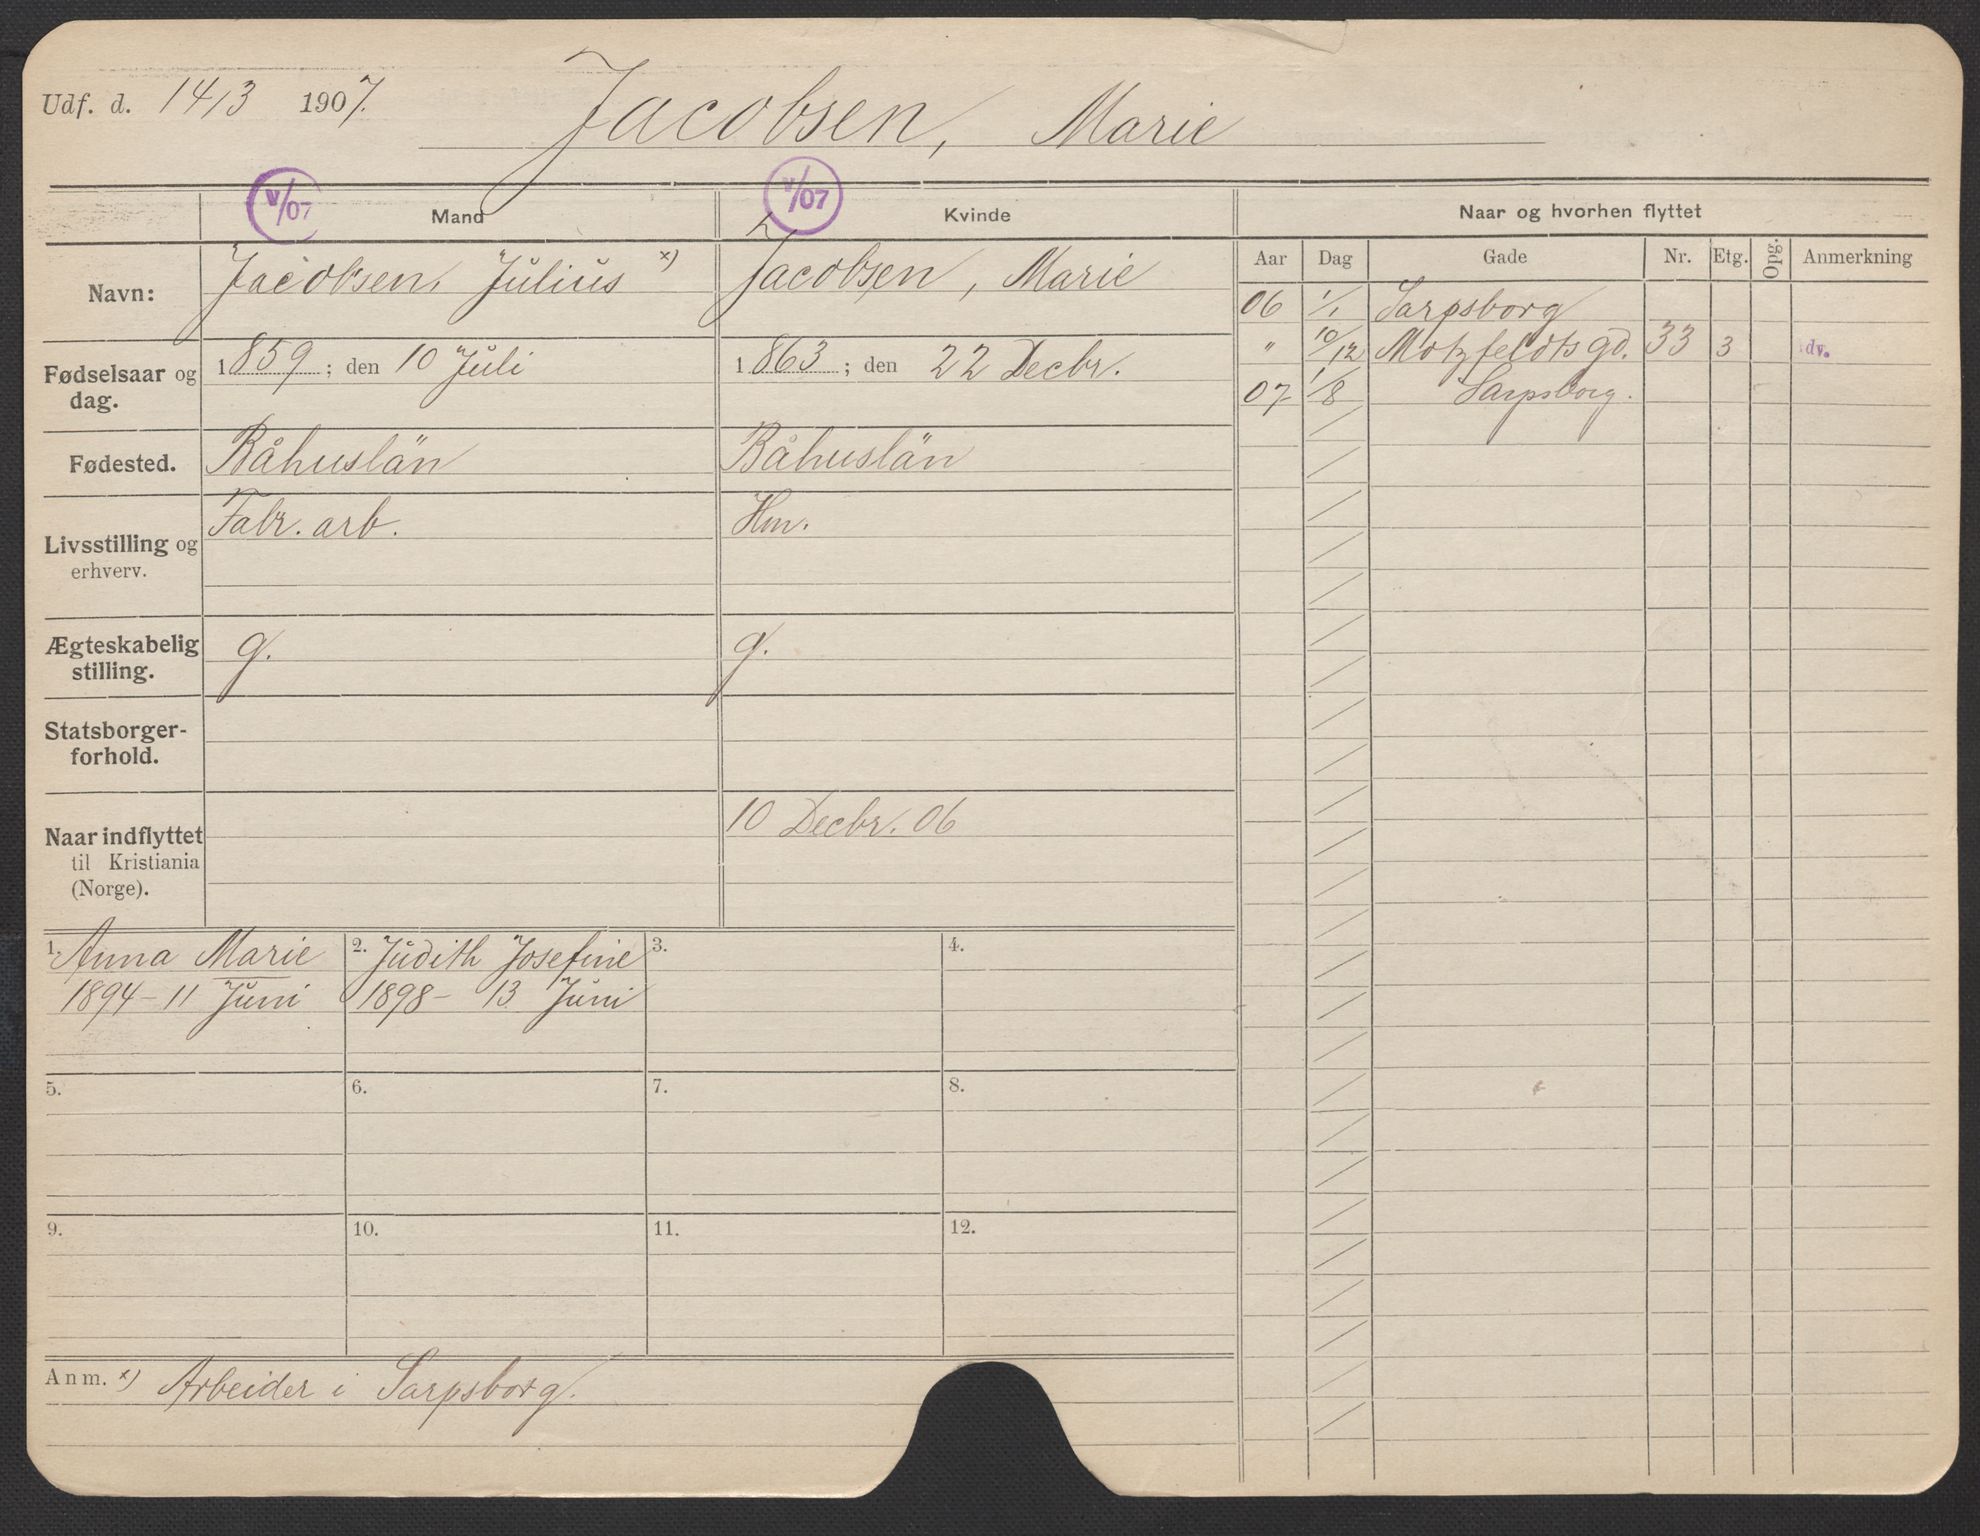 Udf. d. 14/3 1907. Jacobsen, Marie
V/07 V/07
Mand Kvinde Naar og hvorhen flyttet
Aar Dag Gade Nr. Etg. Opg. Anmerkning
Navn: Jacobsen, Julius x) Jacobsen, Marie
06 1/1 Sarpsborg
" 10/12 Motzfeldts gd. 33 3 dv.
07 1/8 Sarpsborg.
Fødselsaar og 1859; den 10 Juli 1863; den 22 Decbr.
dag.
Fødested. Båhuslän Båhuslän
Fabr. arb. Hm.
Livsstilling og
erhverv.
Ægteskabelig g. g.
stilling.
Statsborger-
forhold.
10 Decbr. 06
Naar indflyttet
til Kristiania
(Norge).
1. Anna Marie 2. Judith Josefine 3. 4.
1894 - 11 Juni 1898 - 13 Juni
5. 6. 7. 8.
9. 10. 11. 12.
Anm. x) Arbeider i Sarpsborg.